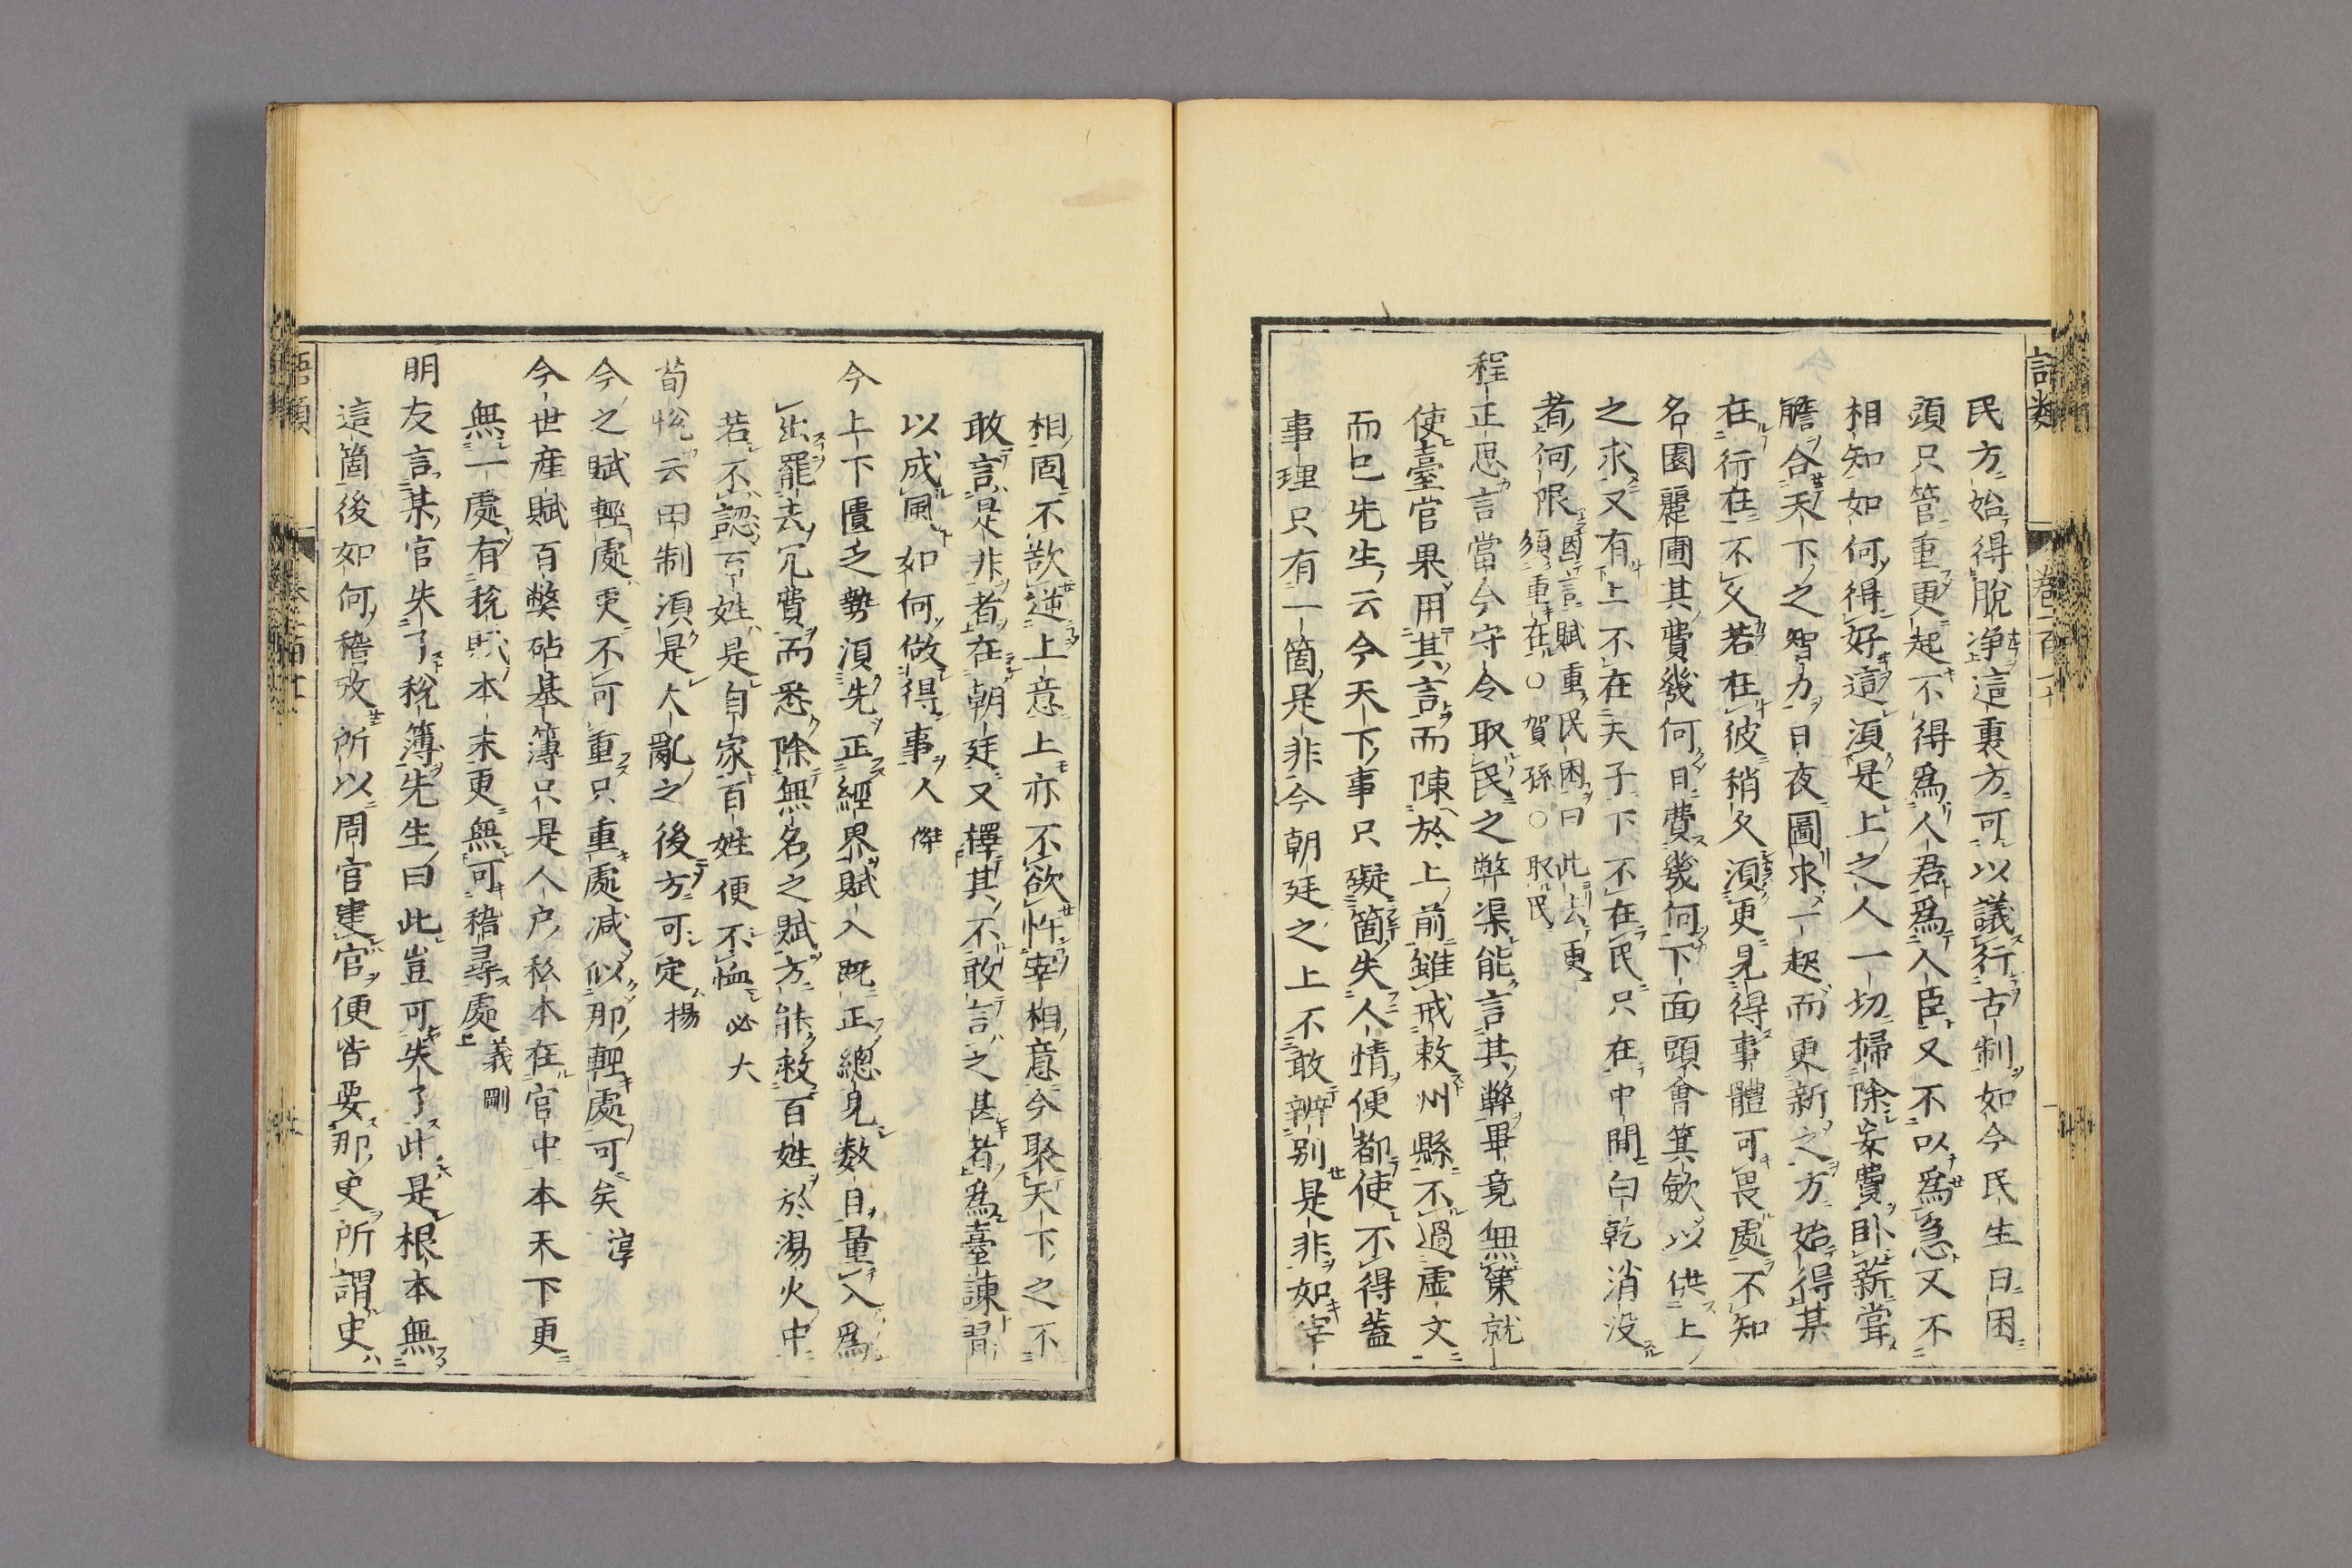 民方始得脫净這裏方可以議行古制如今民生日困
頭只管重更起不得爲人君爲人臣又不以爲急又不
相知如何得好這湏是上之人一切掃除妄費卧薪嘗
膽合天下之智力日夜圖求一起而更新之方始得某
在行在不久若在彼稍久湏更見得事體可畏處不知
名園麗圃其費幾何日費幾何下面頭會箕歛以供上
之求又有上不在天子下不在民只在中間白乾消没
者何限因言賦重民困曰此去更
須重在○賀孫○取民
程正思言當今守令取民之弊渠能言其弊畢竟無策就
使臺官果用其言而陳於上前雖戒敕州縣不過虚文
而已先生云今天下事只礙箇失人情便都使不得蓋
事理只有一箇是非今朝廷之上不敢辨别是非如宰
相固不欲逆上意上亦不欲忤宰相意今聚天下之不
敢言是非者在朝廷又擇其不敢言之甚者爲臺諫習
以成風如何做得事人傑
今上下匱乏勢湏先正經界賦入旣正緫見数目量入爲
出罷去冗費而悉除無名之賦方能救百姓於湯火中
若不認百姓是自家百姓便不恤必大
荀悅云田制湏是大亂之後方可定揚
今之賦輕處更不可重只重處减似那輕處可矣淳
今世産賦百弊砧基簿只是人户私本在官中本天下更
無一處有稅賦本末更無可稽尋處義剛
明友言某官失了稅簿先生曰此豈可失了此是根本無
這箇後如何稽攷所以周官建官便皆要那史所謂史
語類
卷百十